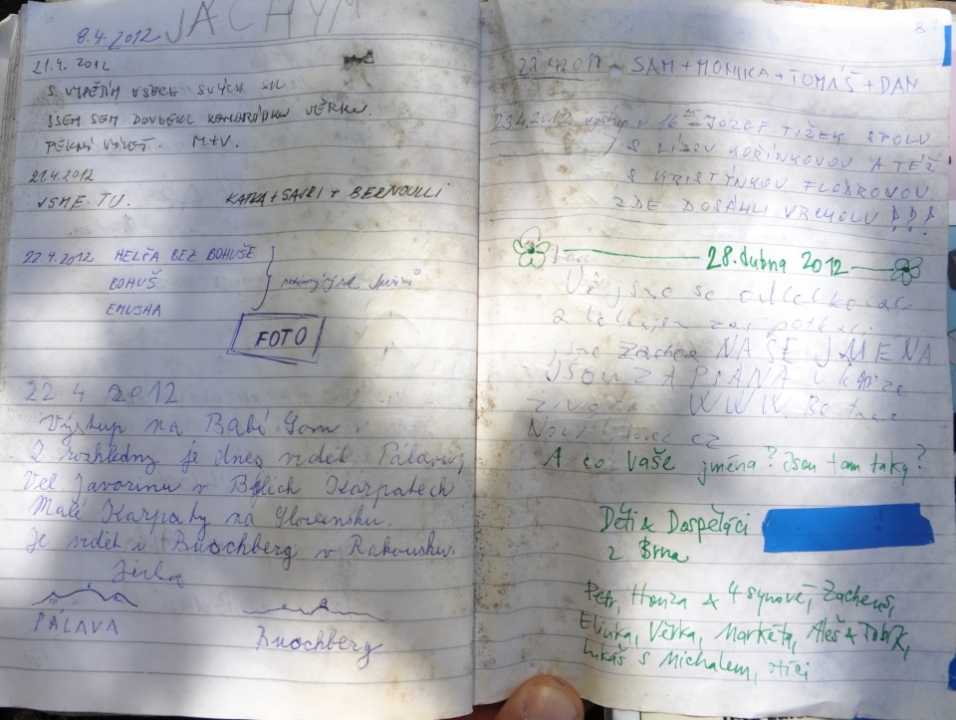 JÁCHYM
8.4.2012
21.4.2012
S VYPĚTÍM VŠECH SVÝCH SIL
JSEM SEM DOVLEKL KAMARÁDKU VĚRKU.
PĚKNÝ VÝLET. M+V.
21.4.2012
JSME TU. KATKA + SAJRI + BERNOULLI
22.4.2012 HELČA BEZ BOHUŠE
BOHUŠ
EMUSHA
FOTO
22 4 2012
Výstup na Babí lom.
Z rozhledny je dnes vidět Pálavu,
Vel Javorinu v Bílých Karpatech
Malé Karpaty na Slovensku.
Je vidět i Buschberg v Rakousku.
Jirka
PÁLAVA
Buschberg
22.4.2012 - SAM + MONIKA + TOMÁŠ + DAN
23.4.2012 výstup v 16 JOZEF TIŽEK SPOLU
S LÍZOU KOŘÍNKOVOU A TÉŽ
S KRISTÝNKOU FLODROVOU
ZDE DOSÁHLI VRCHOLU !!!
28. dubna 2012
Už jsme se
a
jsme Zachea NAŠE JMÉNA
JSOU ZAPSÁNA v knize
života WWW.
A co Vaše jména? Jsou tam taky?
Děti & Dospěláci
z Brna
Petr, Honza & 4 synové, Zacheus,
Elinka, Věrka, Markéta, Aleš & Tobík,
Lukáš s Michalem, otíci